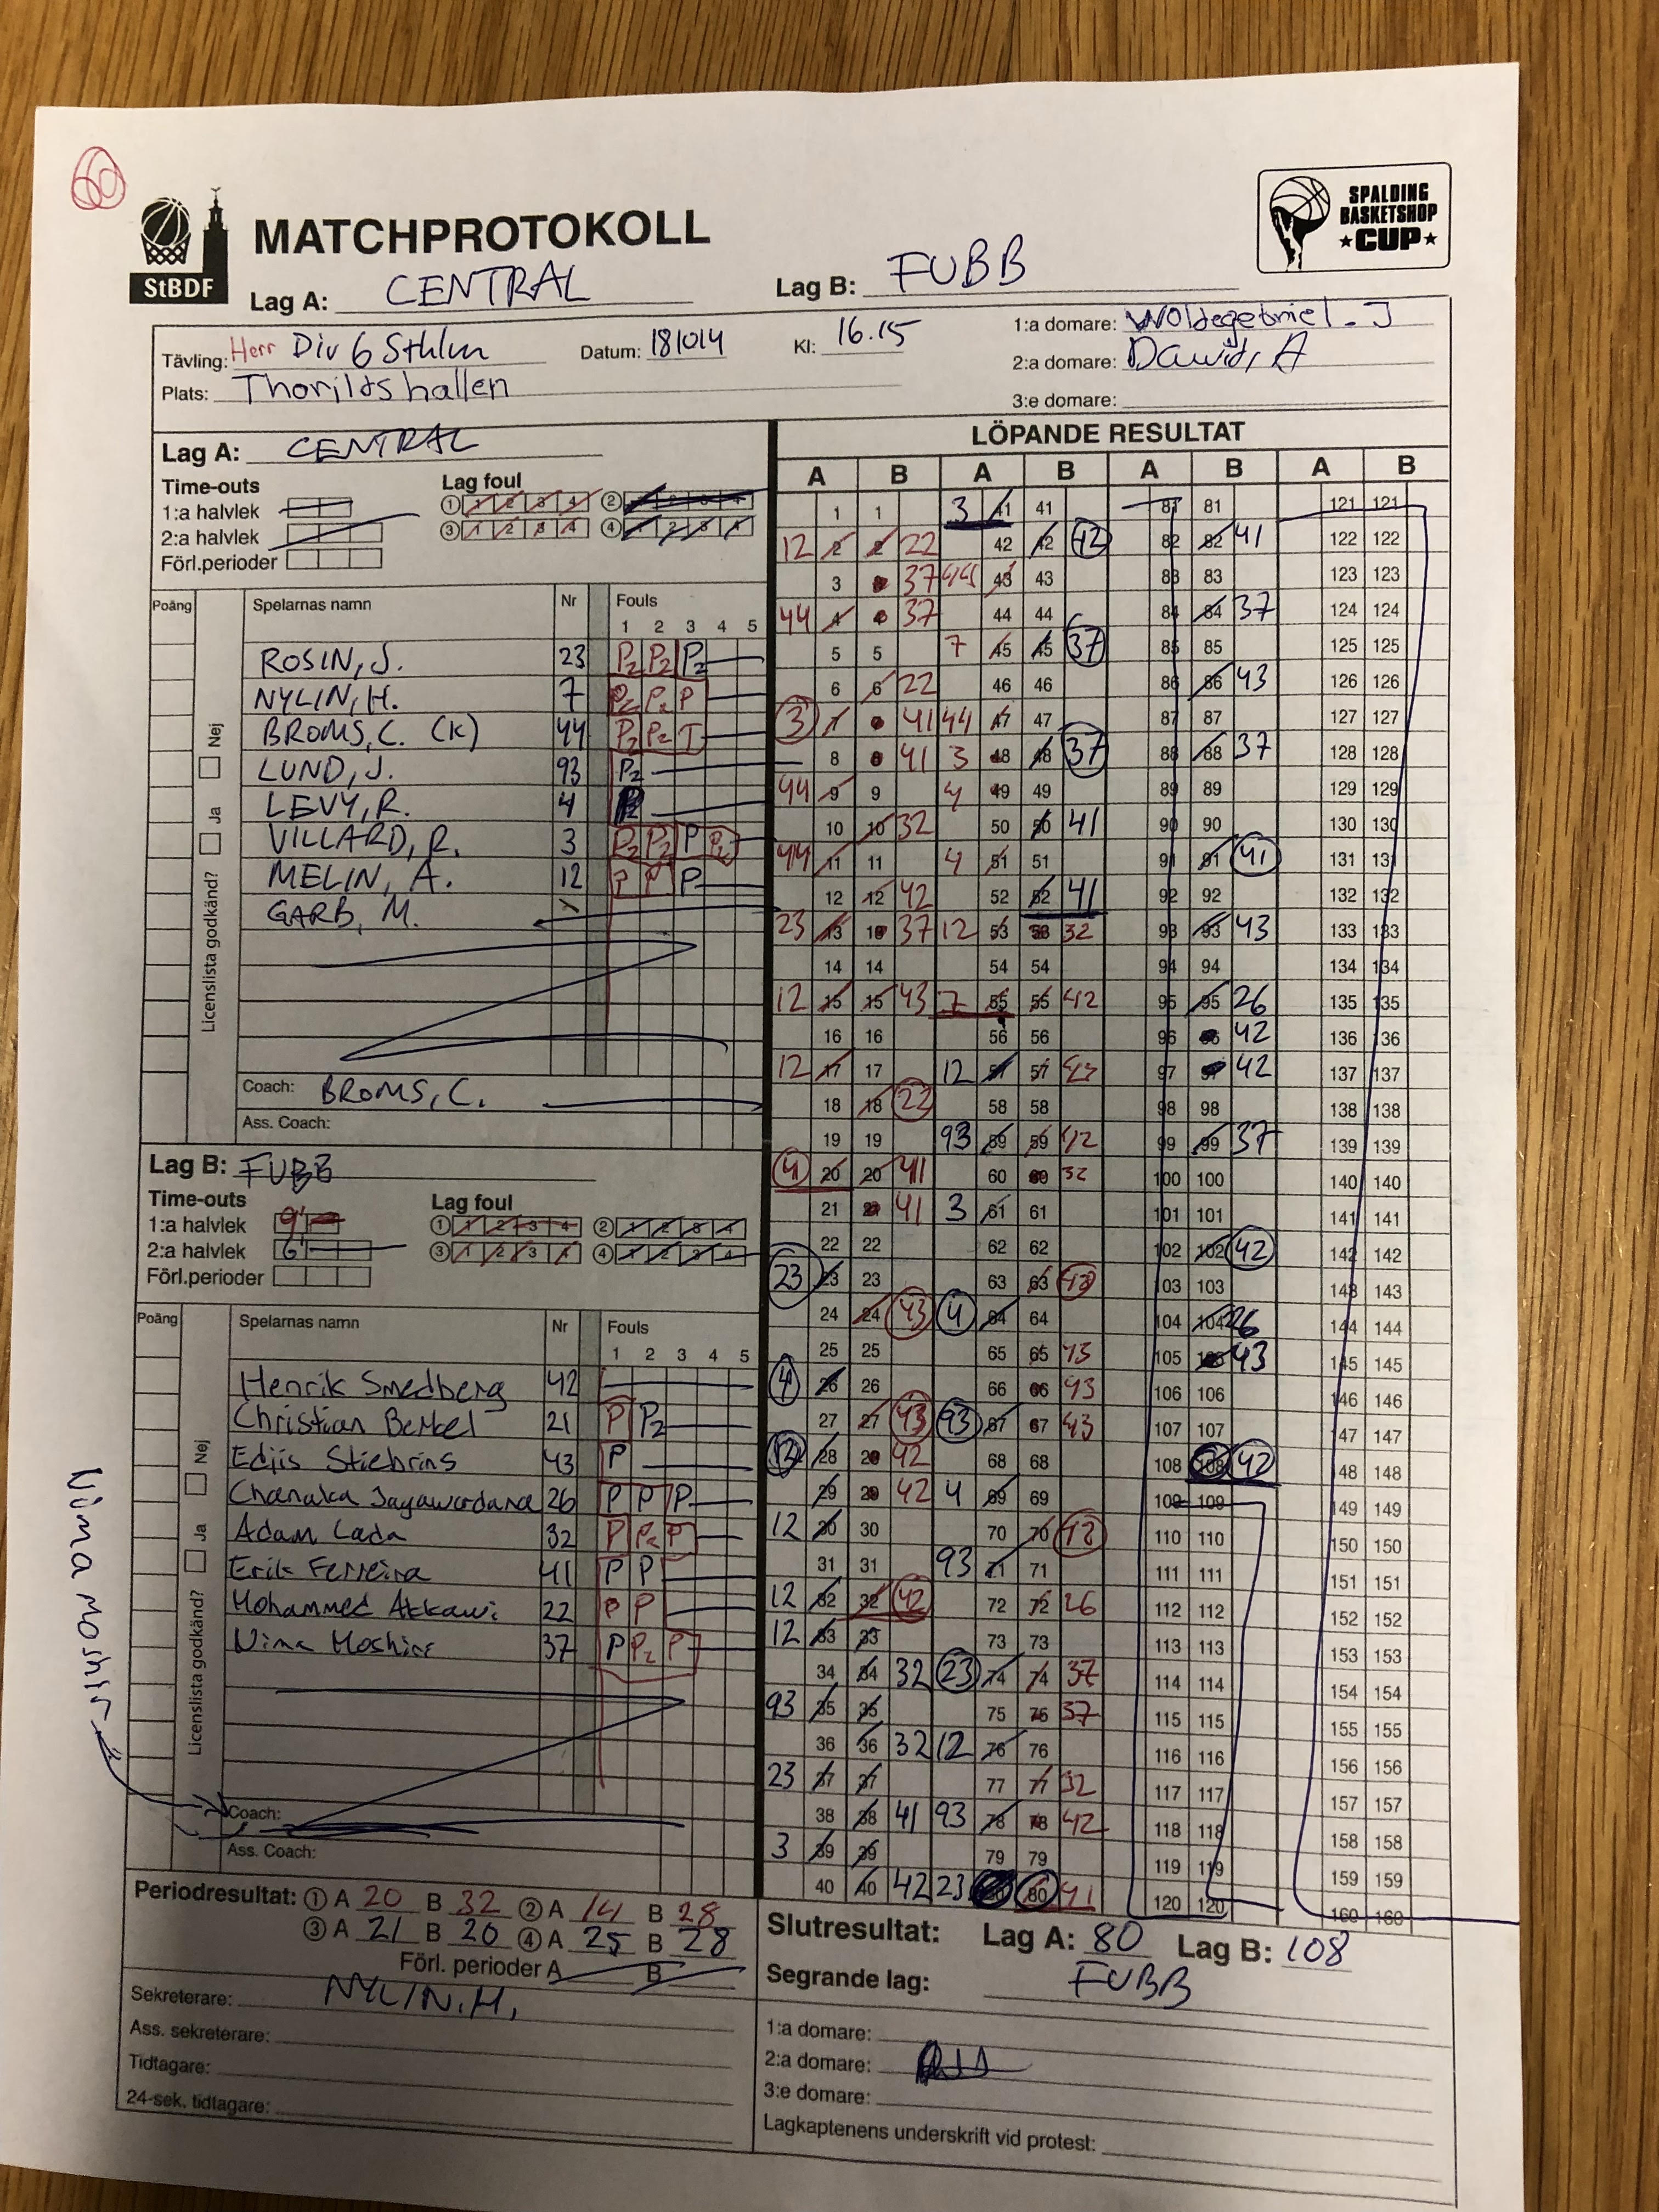 60
StBDF
MATCHPROTOKOLL
SPALDING
BASKETSHOP
★CUP★
Lag A: CENTRAL Lag B: FUBB
Tävling: Herr Div 6 Sthlm Datum: 181014 Kl: 16.15
Plats: Thorildshallen
1:a domare: Woldegebriel. J
2:a domare: Dawit, A
3:e domare:
Lag A: CENTRAL
Time-outs Lag foul
1:a halvlek ① 1 2 3 4 ② 1 2 3 4
2:a halvlek ③ 1 2 3 4 ④ 1 2 3 4
Förl.perioder
Poäng Spelarnas namn Nr Fouls
1 2 3 4 5
Licenslista godkänd? Ja Nej
ROSIN, J. 23 P2 P2 P2
NYLIN, H. 7 P2 P2 P
BROMS, C. (K) 44 P2 P2 T
LUND, J. 93 P2
LEVY, R. 4
VILLARD, R. 3 P2 P2 P P2
MELIN, A. 12 P P P
GARB, M.
Coach: BROMS, C.
Ass. Coach:
Lag B: FUBB
Time-outs Lag foul
1:a halvlek 9' ① 1 2 3 4 ② 1 2 3 4
2:a halvlek 6' ③ 1 2 3 4 ④ 1 2 3 4
Förl.perioder
Poäng Spelarnas namn Nr Fouls
1 2 3 4 5
Licenslista godkänd? Ja Nej
Henrik Smedberg 42
Christian Berkel 21 P P2
Edjis Stiebrins 43 P
Chanaka Jayawardana 26 P P P
Adam Lada 32 P P2 P
Erik Ferreira 41 P P
Mohammed Akkawi 22 P P
Nima Moshiri 37 P P2 P
Nima Moshiri
Coach:
Ass. Coach:
LÖPANDE RESULTAT
A B A B A B A B
1 1 3 41 41 81 81 121 121
12 2 2 22 42 42 42 82 82 41 122 122
3 3 37 44 43 43 83 83 123 123
44 4 4 37 44 44 84 84 37 124 124
5 5 7 45 45 37 85 85 125 125
6 6 22 46 46 86 86 43 126 126
3 7 7 41 44 47 47 87 87 127 127
8 8 41 3 48 48 37 88 88 37 128 128
44 9 9 4 49 49 89 89 129 129
10 10 32 50 50 41 90 90 130 130
44 11 11 4 51 51 91 91 41 131 131
12 12 42 52 52 41 92 92 132 132
23 13 13 37 12 53 53 32 93 93 43 133 133
14 14 54 54 94 94 134 134
12 15 15 43 7 55 55 42 95 95 26 135 135
16 16 56 56 96 96 42 136 136
12 17 17 12 57 57 43 97 97 42 137 137
18 18 22 58 58 98 98 138 138
19 19 93 59 59 42 99 99 37 139 139
4 20 20 41 60 60 32 100 100 140 140
21 21 41 3 61 61 101 101 141 141
22 22 62 62 102 102 42 142 142
23 23 23 63 63 43 103 103 143 143
24 24 43 4 64 64 104 104 26 144 144
25 25 65 65 43 105 105 43 145 145
4 26 26 66 66 43 106 106 146 146
27 27 43 93 67 67 43 107 107 147 147
12 28 28 42 68 68 108 108 42 148 148
29 29 42 4 69 69 109 109 149 149
12 30 30 70 70 42 110 110 150 150
31 31 93 71 71 111 111 151 151
12 32 32 42 72 72 26 112 112 152 152
12 33 33 73 73 113 113 153 153
34 34 32 23 74 74 37 114 114 154 154
93 35 35 75 75 37 115 115 155 155
36 36 32 12 76 76 116 116 156 156
23 37 37 77 77 32 117 117 157 157
38 38 41 93 78 78 42 118 118 158 158
3 39 39 79 79 119 119 159 159
40 40 42 23 80 80 41 120 120 160 160
Periodresultat: ① A 20 B 32 ② A 14 B 28
③ A 21 B 20 ④ A 25 B 28
Förl. perioder A B
Sekreterare: NYLIN. H,
Ass. sekreterare:
Tidtagare:
24-sek. tidtagare:
Slutresultat: Lag A: 80 Lag B: 108
Segrande lag: FUBB
1:a domare:
2:a domare:
3:e domare:
Lagkaptenens underskrift vid protest: